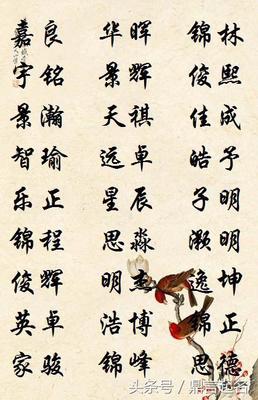 嘉良 华晖 锦林
宇铭 景辉 俊熙
景瀚 天祺 佳成
智瑜 远卓 皓予
乐正 星辰 子明
锦程 思淼 灏明
俊辉 明 逸坤
英卓 浩博 锦正
家骏 锦峰 思德
头条号／鼎言起名